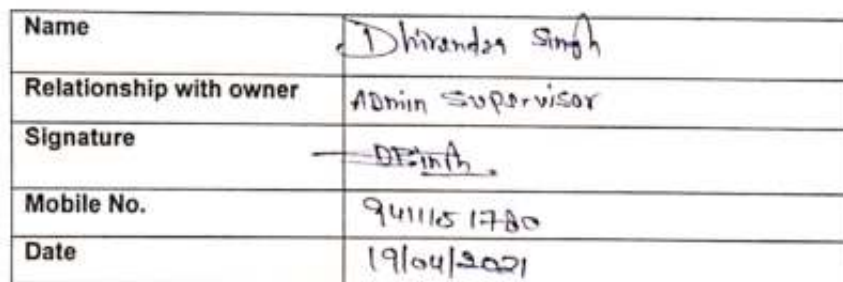 Name Dhirender Singh
Relationship with owner ADmin Supervisor
Signature
Mobile No. 9411151780
Date 19/04/2021